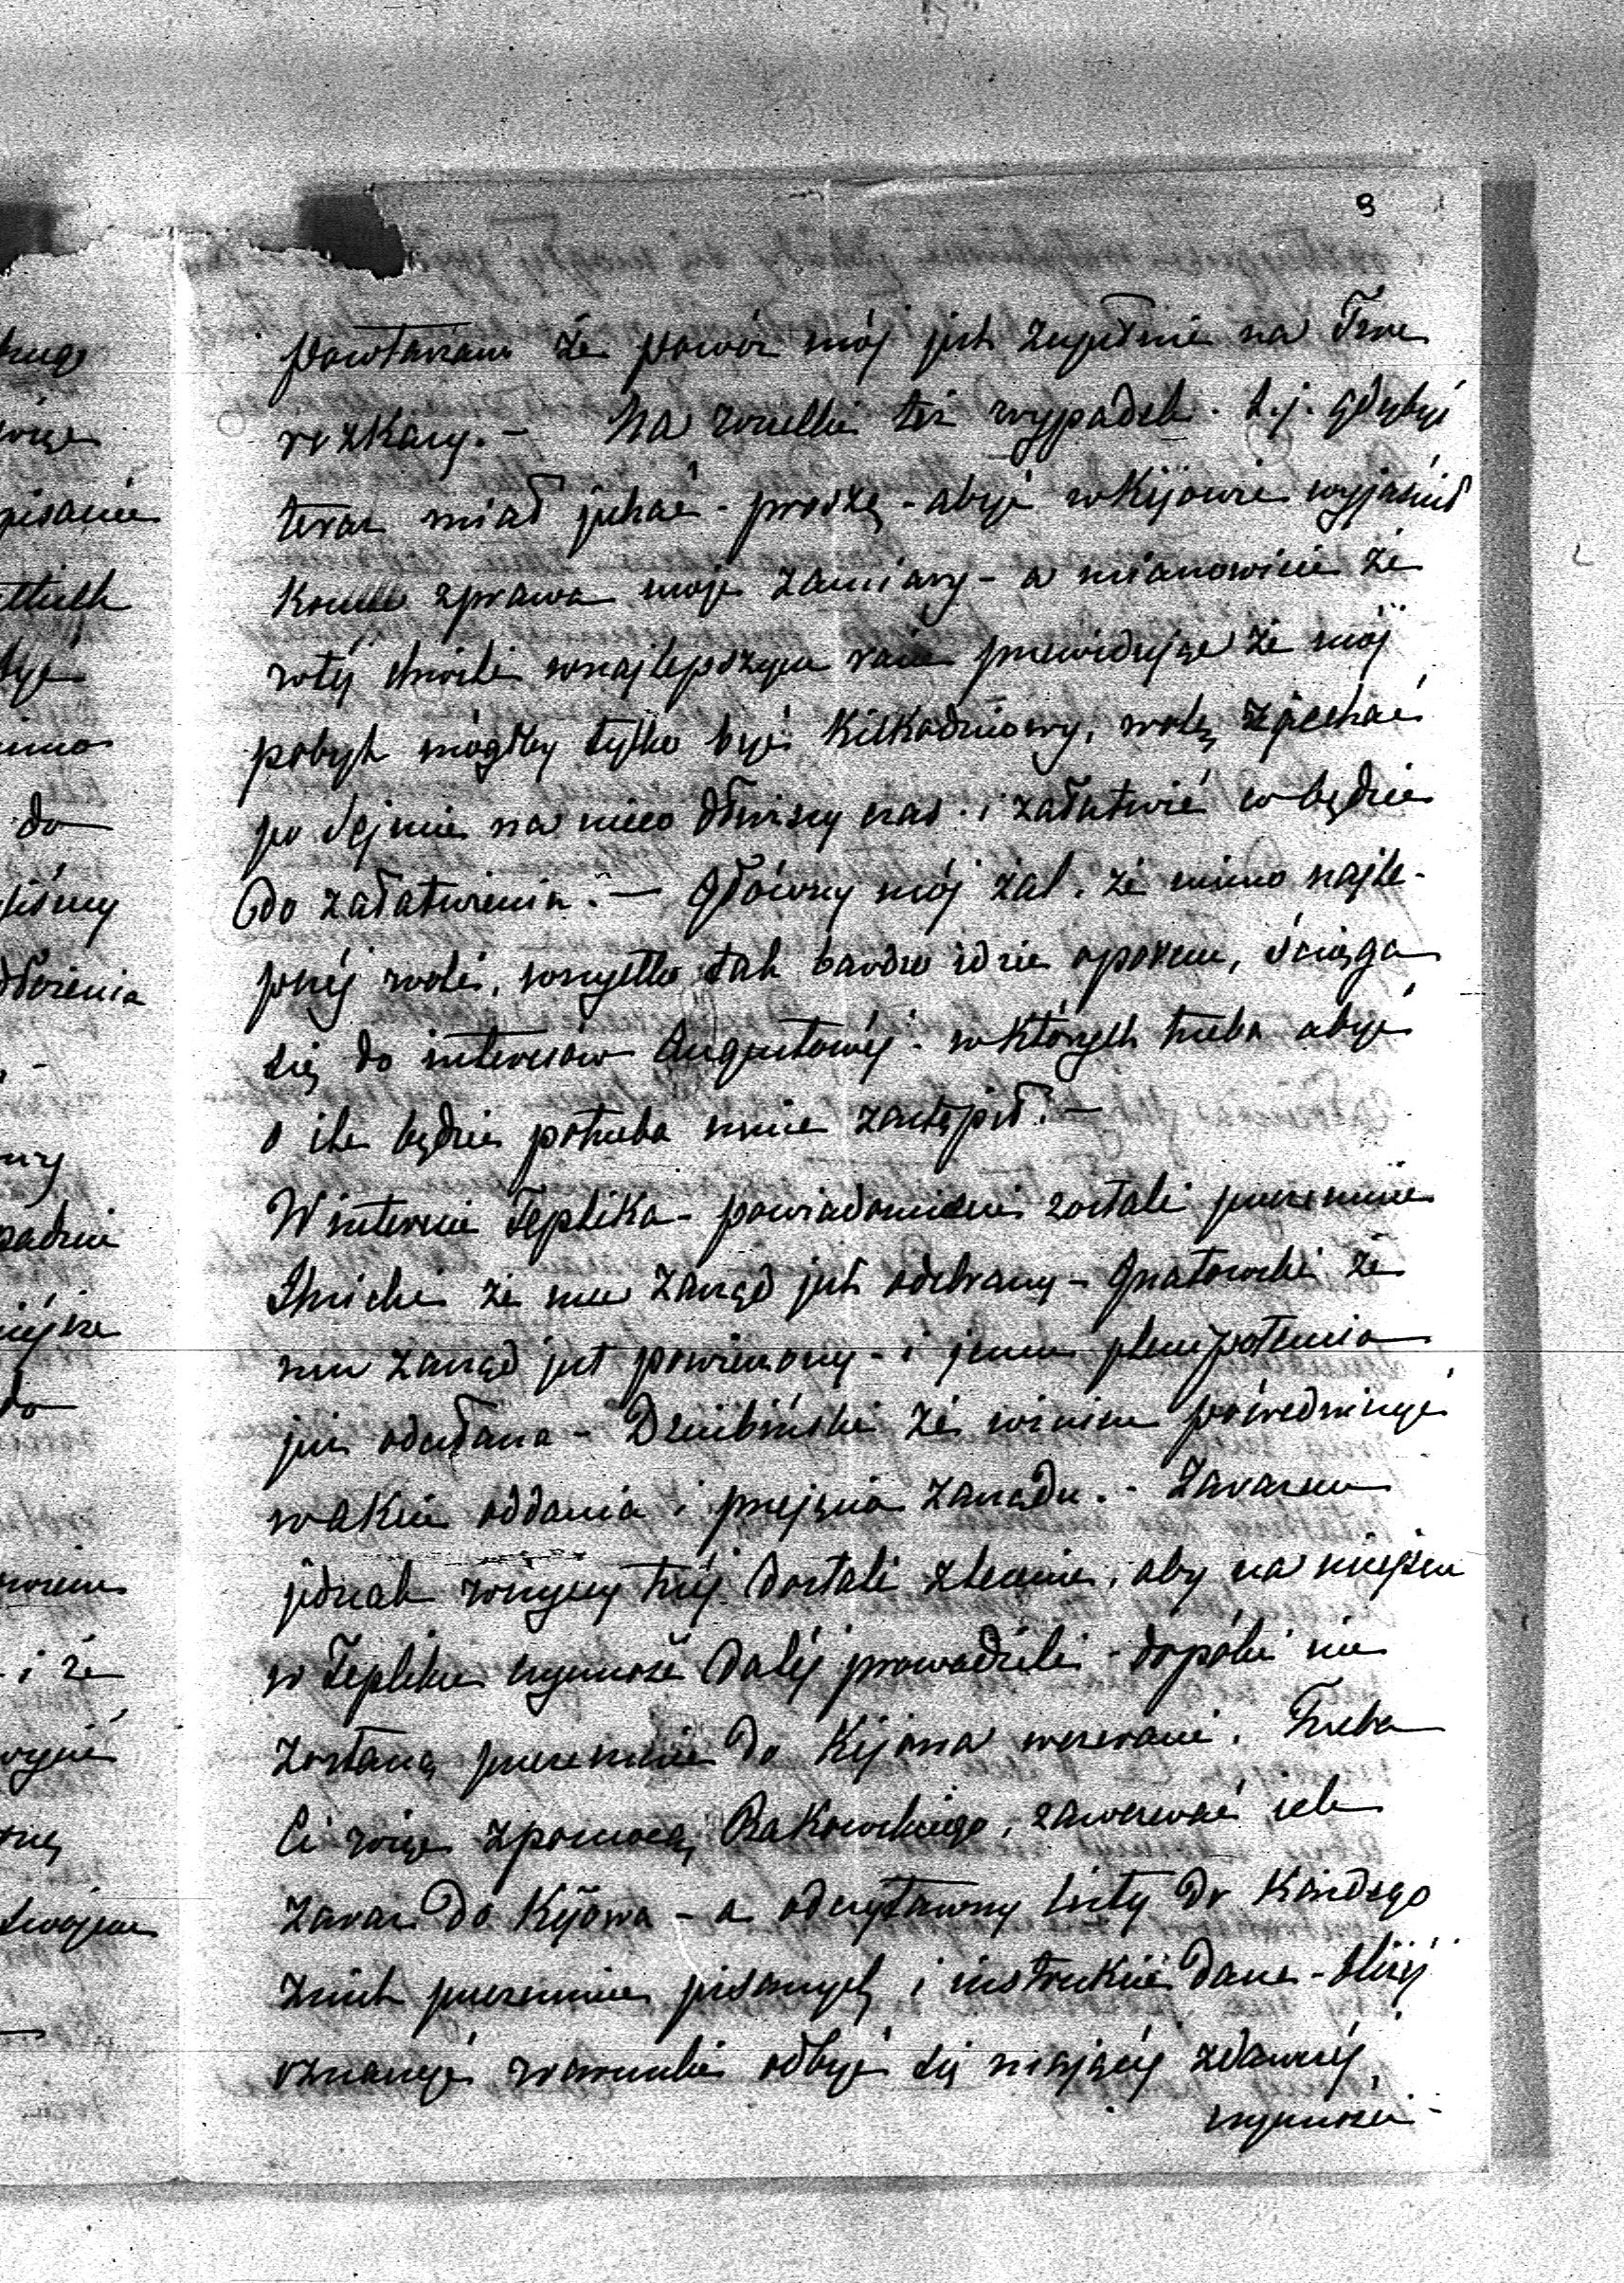 9
powtarzam że powóz mój jest zupełnie na Twe
rozkazy. – Na wszelki też wypadek. t.j. gdybyś
teraz miał jechać – proszę – abyś w Kijowie wyjaśnił
komu sprawa moje zamiary – a mianowicie że
w téj chwili w najlepszym razie przewidując że mój
pobyt mógłby tylko być kilkodniowy, wolę zjechać
po Sejmie na nieco dłuższy czas. i załatwić co będzie
do załatwienia. – Główny mój żal, że mimo najle-
pszéj woli, wszystko tak bardzo idzie oporem, ściąga
się do interesów Augustowéj. w których trzeba abyś
o ile będzie potrzeba mnie zastąpił. –
W interesie Teplika – powiadomieni zostali przezemnie
że mu zarząd jest odebrany – Gnatowski że
mu zarząd jest powierzony – i jemu plenipotencia
już odesłana – Dzieubiński że winien pośredniczyć
w akcie oddania i przejęcia zarządu. – Zarazem
jednak wszyscy trzéj dostali zlecenie, aby na miejscu
w Tepliku czynność daléj prowadzili – dopóki nie
zostaną przezemnie do Kijowa wezwani. Trzeba
Ci więc z pomocą Rakowskiego, zawezwać ich
zaraz do Kijowa – a odczytawszy listy do każdego
z nich przezemnie pisanych i instrukcie dane – bliżéj
oznaczyć warunki odbyć się mającéj zdawczéj
czynności –
do
i że